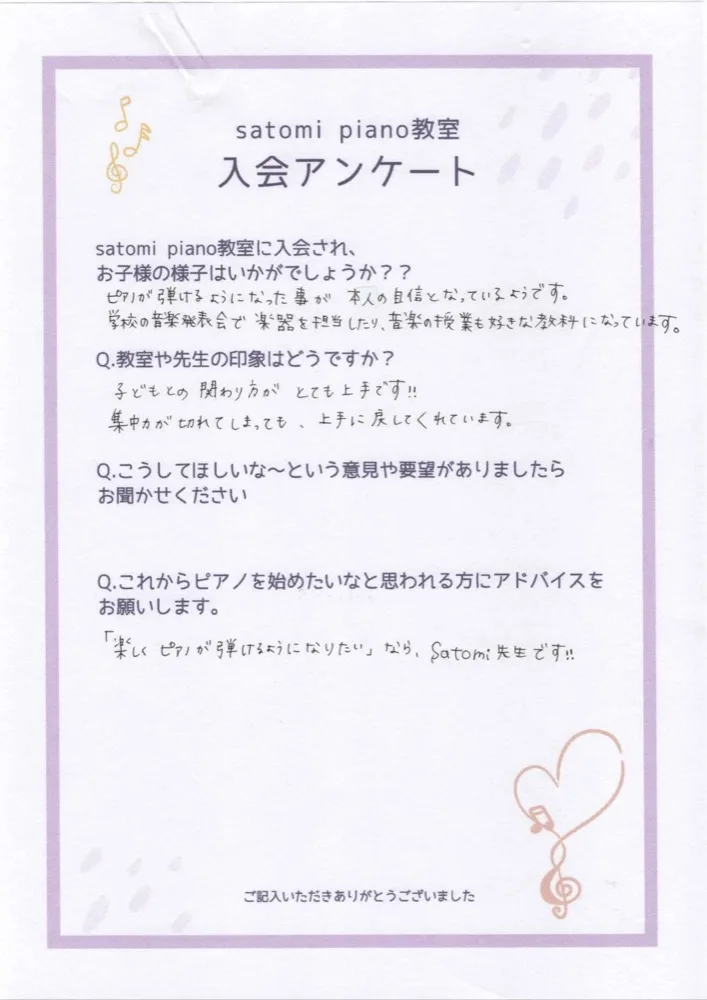 satomi piano教室
入会アンケート
satomi piano教室に入会され、
お子様の様子はいかがでしょうか？？
ピアノが弾けるようになった事が 本人の自信となっているようです。
学校の音楽発表会で 楽器を担当したり、音楽の授業も好きな教科になっています。
Q.教室や先生の印象はどうですか？
子どもとの 関わり方が とても上手です!!
集中力が切れてしまっても、上手に戻してくれています。
Q.こうしてほしいな〜という意見や要望がありましたら
お聞かせください
Q.これからピアノを始めたいなと思われる方にアドバイスを
お願いします。
「楽しく ピアノが弾けるようになりたい」なら、Satomi先生です!!
ご記入いただきありがとうございました